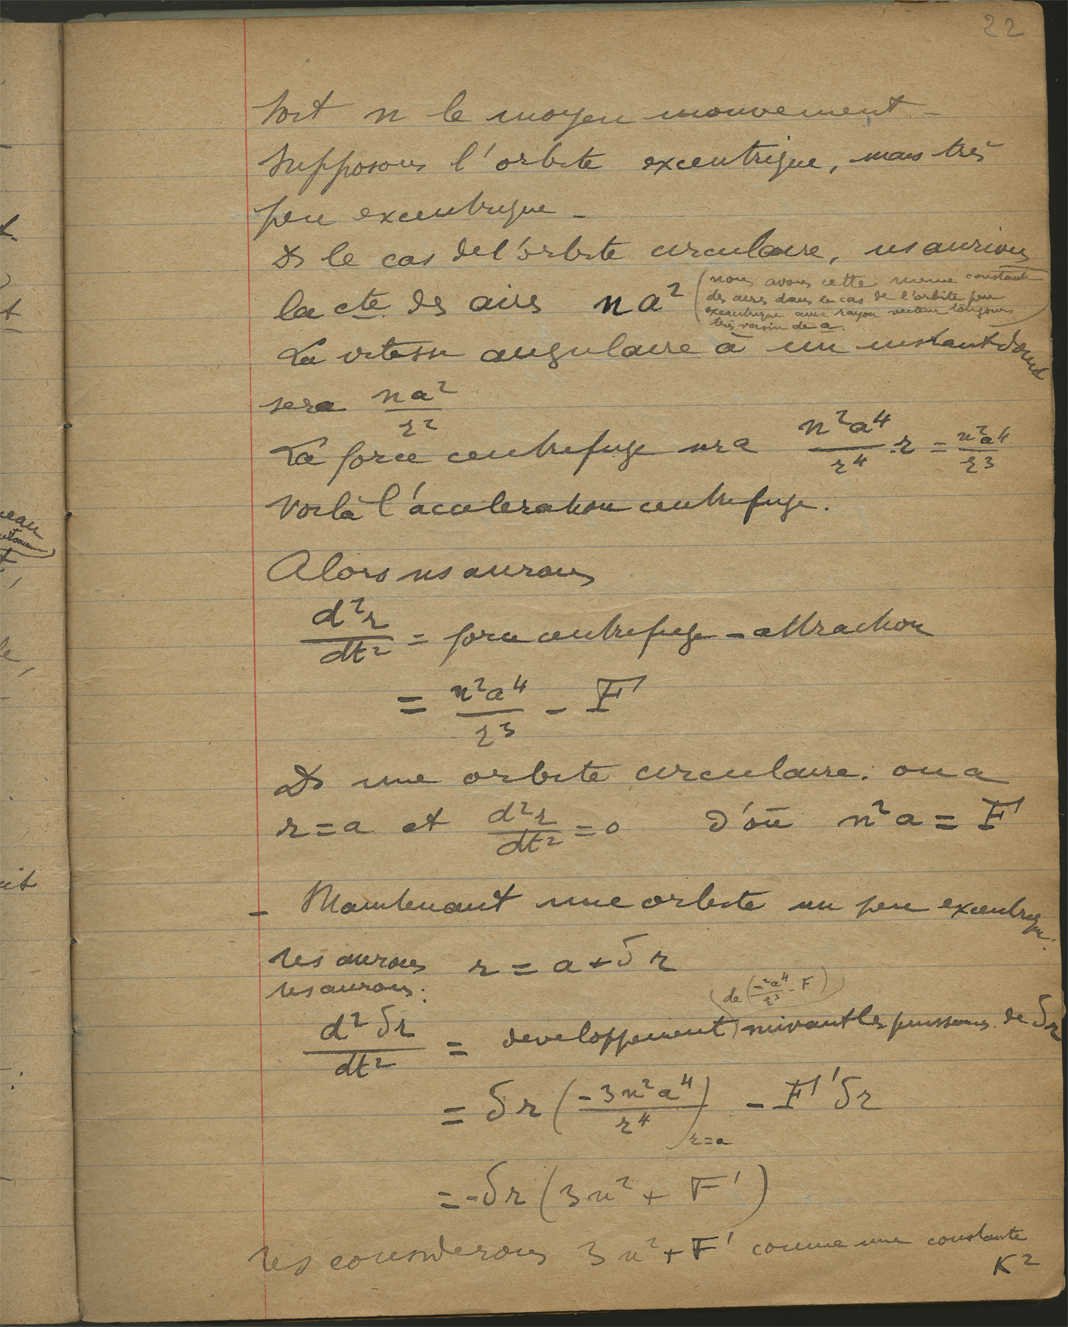 22
Soit n le moyen mouvement –
Supposons l'orbite excentrique, mais très
peu excentrique –
Ds le cas de l'orbite circulaire, ns aurions
la cte des aires n a² (nous avons cette meme constante
des aires dans le cas de l'orbite peu
excentrique avec rayon vecteur toujours
très voisin de a.)
La vitesse angulaire à un instant donné
sera na²/r²
La force centrifuge sera n²a⁴/r⁴ . r = n²a⁴/r³
Voilà l'acceleration centrifuge.
Alors ns aurons
d²r/dt² = force centrifuge – attraction
= n²a⁴/r³ – F
Ds une orbite circulaire. on a
r = a et d²r/dt² = 0 d'où n²a = F
– Maintenant une orbite un peu excentrique.
ns aurons r = a + δr
ns aurons:
d²δr/dt² = developpement (de (n²a⁴/r³ – F)) suivant les puissances de δr
= δr (–3n²a⁴/r⁴)r=a – F'δr
= –δr (3n² + F')
ns considerons 3n² + F' comme une constante
K²